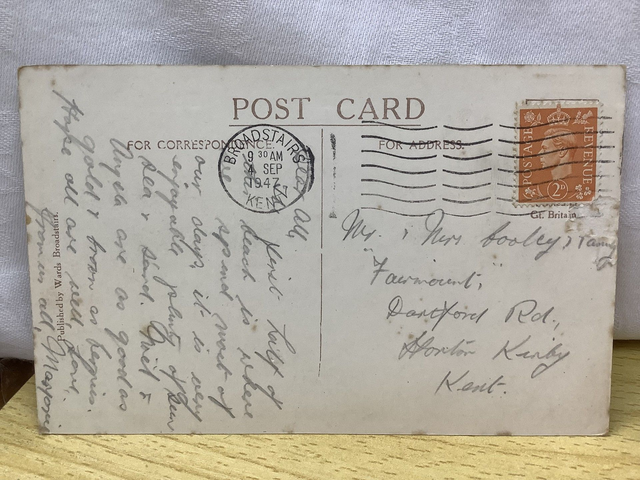 POST CARD
FOR CORRESPONDENCE.
FOR ADDRESS.
BROADSTAIRS
9 30 AM
4 SEP
1947
KENT
POSTAGE
REVENUE
2D
Gt. Britain
Mr. & Mrs Cooley & Family
"Fairmount,"
Dartford Rd,
Horton Kirby
Kent.
Dear All,
first half of
beach is where
spend most of
our days, it is very
enjoyable, plenty of sun
sea & sand.
Angela are as good as
gold & brown as berries.
Hope all are well, love
from us all,
Published by Wards Broadstairs.